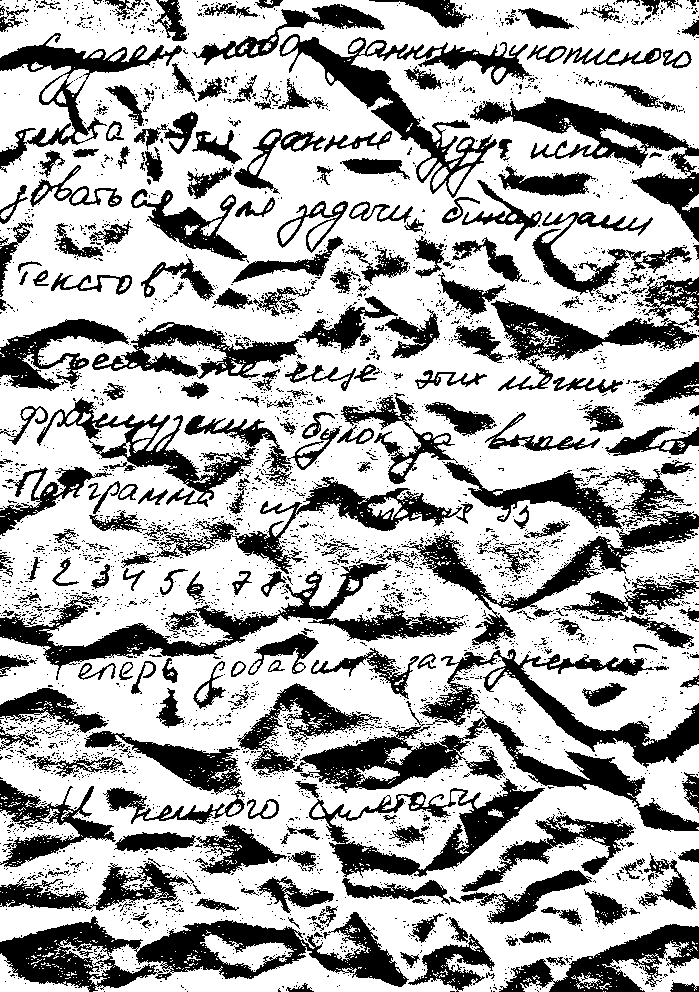 Создаем набор данных рукописного
текста. Эти данные будут исполь-
зоваться для задачи бинаризации
текстов
Съешь же еще этих мягких
французских булок да выпей
Панграмма из 33
1 2 3 4 5 6 7 8 9
Теперь добавим загрязнений
И немного смятости